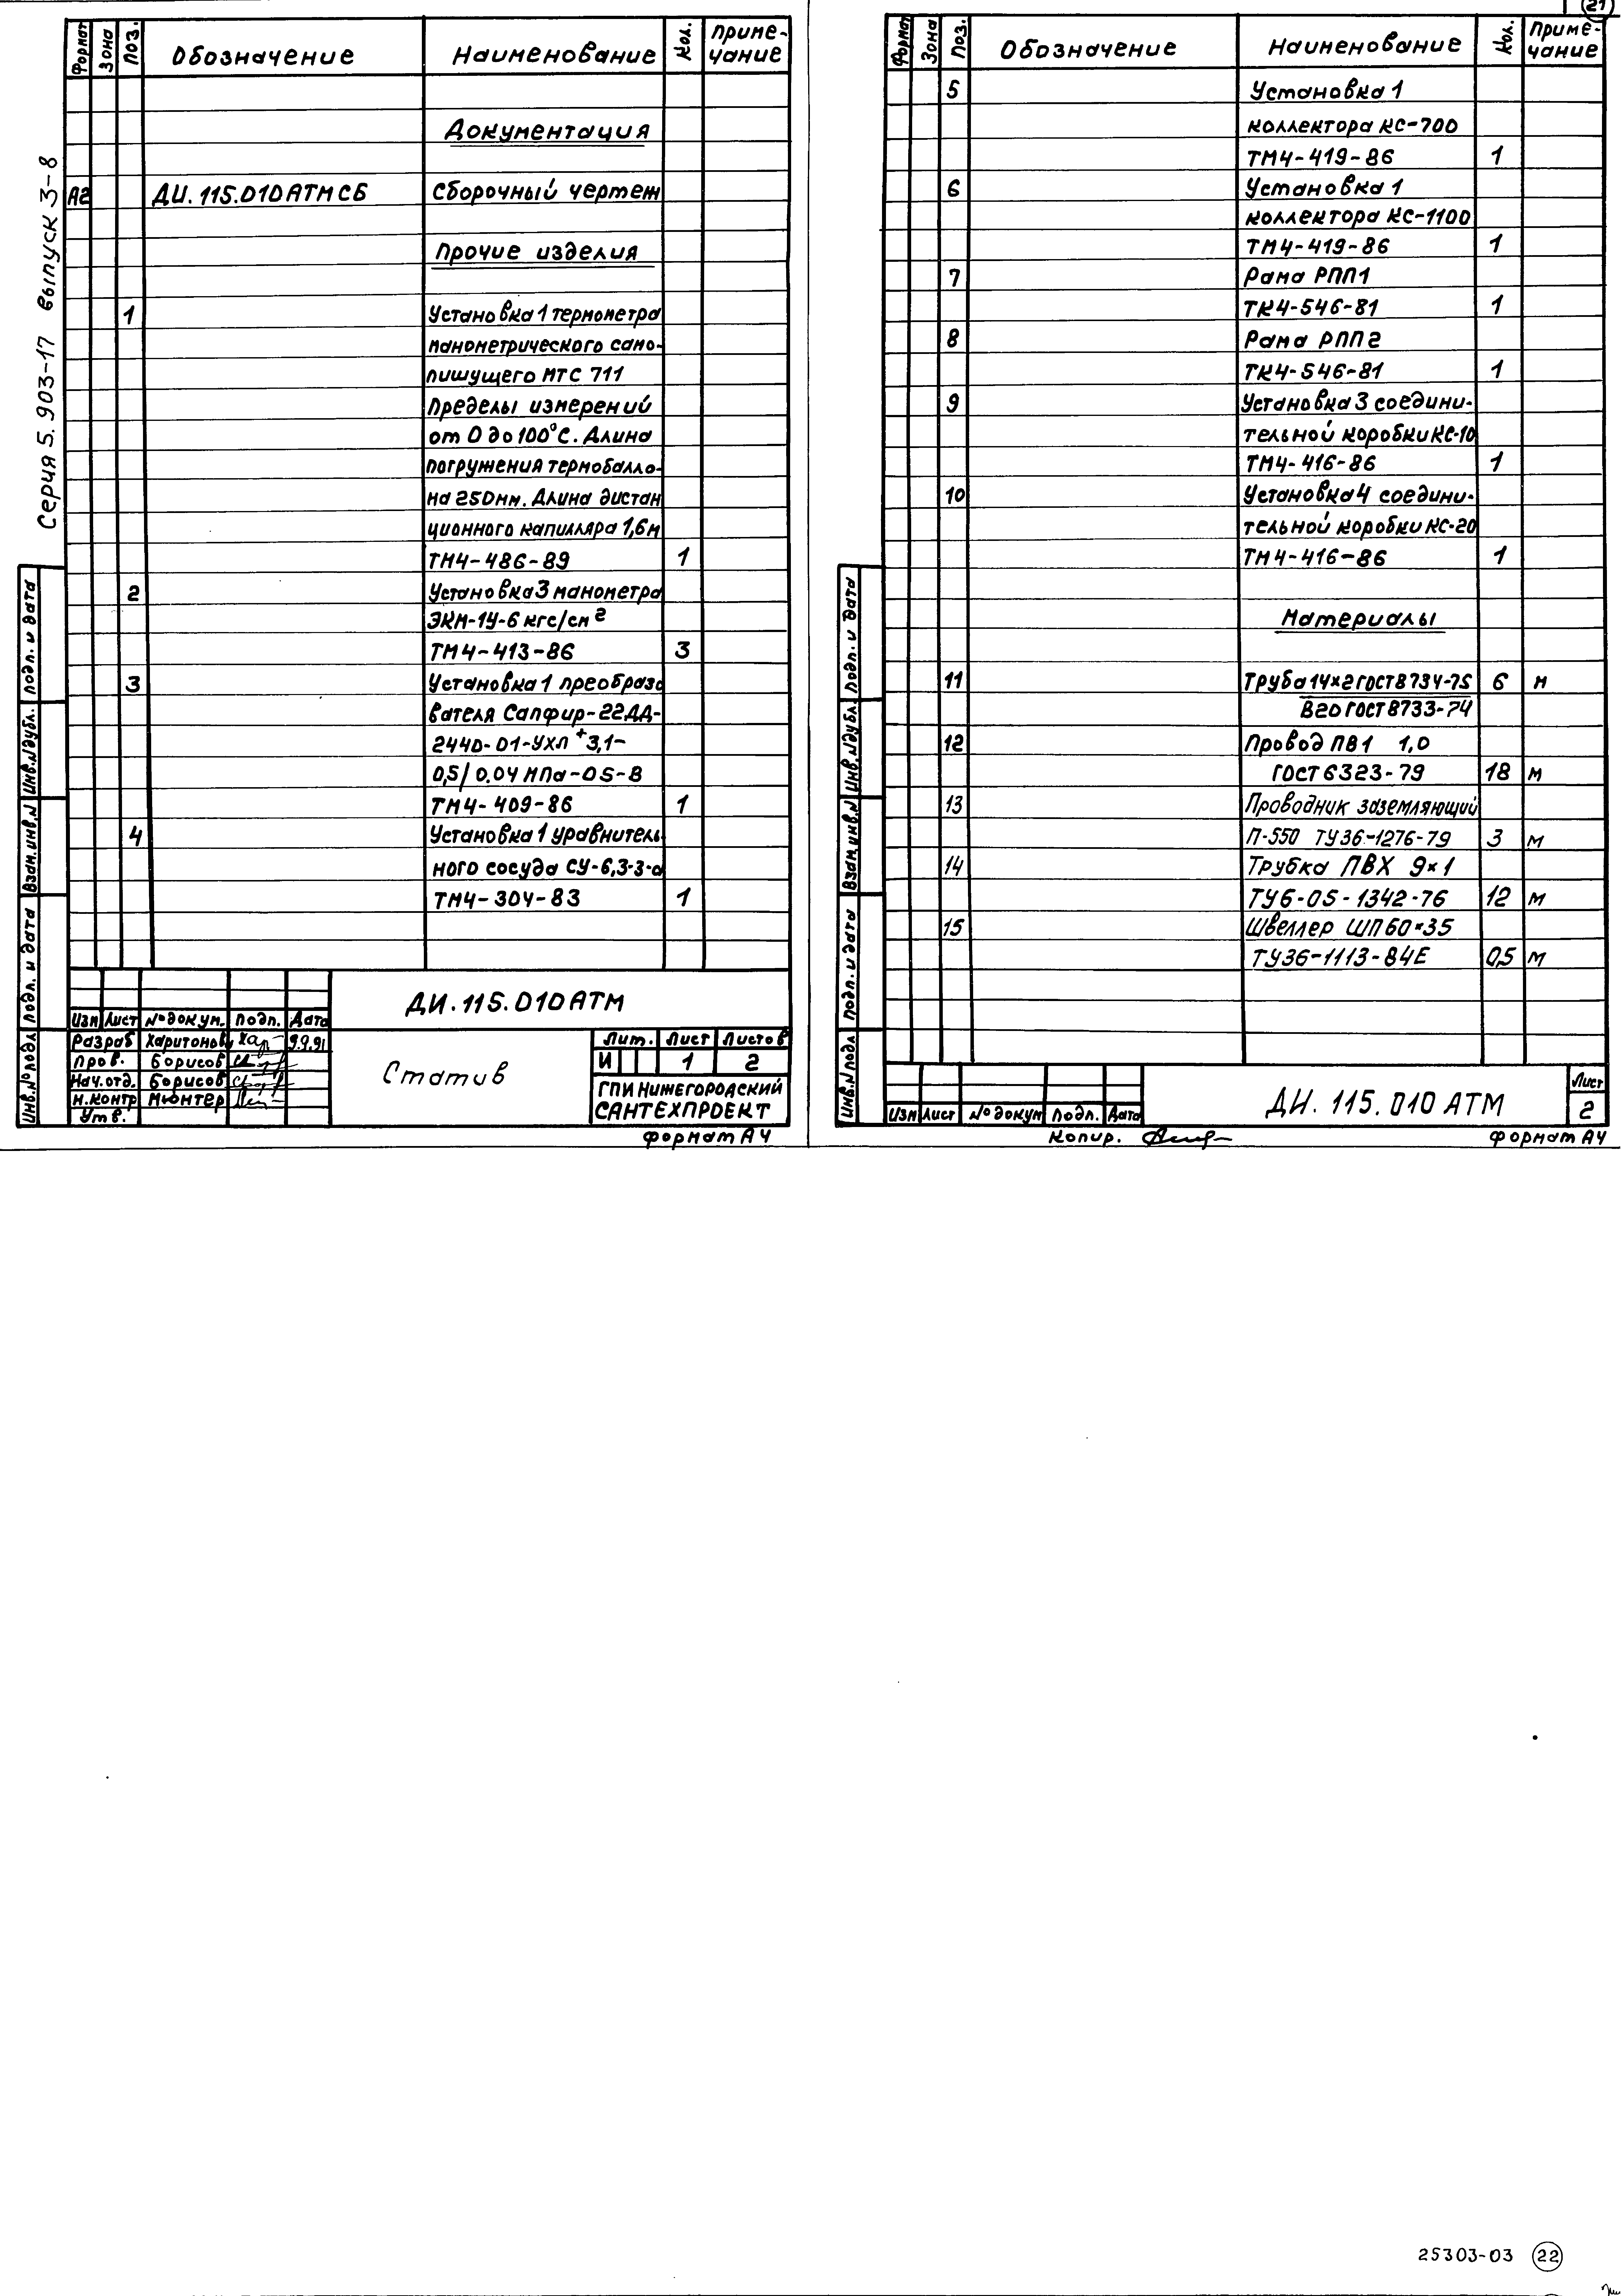 Серия 5.903-17 выпуск 3-8
Формат Зона Поз. Обозначение Наименование Кол. Приме-
чание
Документация
А2 ДИ.115.010АТМ СБ Сборочный чертеж
Прочие изделия
1 Установка 1 термометра
манометрического само-
пишущего МТС 711
Пределы измерений
от 0 до 100°С. Длина
погружения термобалло-
на 250мм. Длина дистан
ционного капилляра 1,6м
ТМ4-486-89 1
2 Установка 3 манометра
ЭКМ-1У-6 кгс/см²
ТМ4-413-86 3
3 Установка 1 преобразо
вателя Сапфир-22ДД-
2440-01-УХЛ*3,1-
0,5/0.04 МПа-05-В
ТМ4-409-86 1
4 Установка 1 уравнитель-
ного сосуда СУ-6,3-3-а
ТМ4-304-83 1
ДИ.115.010АТМ
Изм Лист № докум. Подп. Дата
Разраб Харитонов 9.9.91
Пров. Борисов
Нач.отд. Борисов
Н.контр Мюнтер
Утв.
Статив
Лит. Лист Листов
И 1 2
ГПИ НИЖЕГОРОДСКИЙ
САНТЕХПРОЕКТ
Формат А4
Инв.№подл Подп. и дата Взам.инв.№ Инв.№дубл. Подп. и дата
21
Формат Зона Поз. Обозначение Наименование Кол. Приме-
чание
5 Установка 1
коллектора КС-700
ТМ4-419-86 1
6 Установка 1
коллектора КС-1100
ТМ4-419-86 1
7 Рама РПП1
ТК4-546-81 1
8 Рама РПП2
ТК4-546-81 1
9 Установка 3 соедини-
тельной коробки КС-10
ТМ4-416-86 1
10 Установка 4 соедини-
тельной коробки КС-20
ТМ4-416-86 1
Материалы
11 Труба 14×2 ГОСТ 8734-75 6 м
В20 ГОСТ 8733-74
12 Провод ПВ1 1,0
ГОСТ 6323-79 18 м
13 Проводник заземляющий
П-550 ТУ36-1276-79 3 м
14 Трубка ПВХ 9×1
ТУ6-05-1342-76 12 м
15 Швеллер ШП 60×35
ТУ36-1113-84Е 0,5 м
Изм Лист № докум Подп. Дата
ДИ.115.010 АТМ
Лист
2
Копир.
Формат А4
Инв.№подл Подп. и дата Взам.инв.№ Инв.№дубл. Подп. и дата
25303-03 22